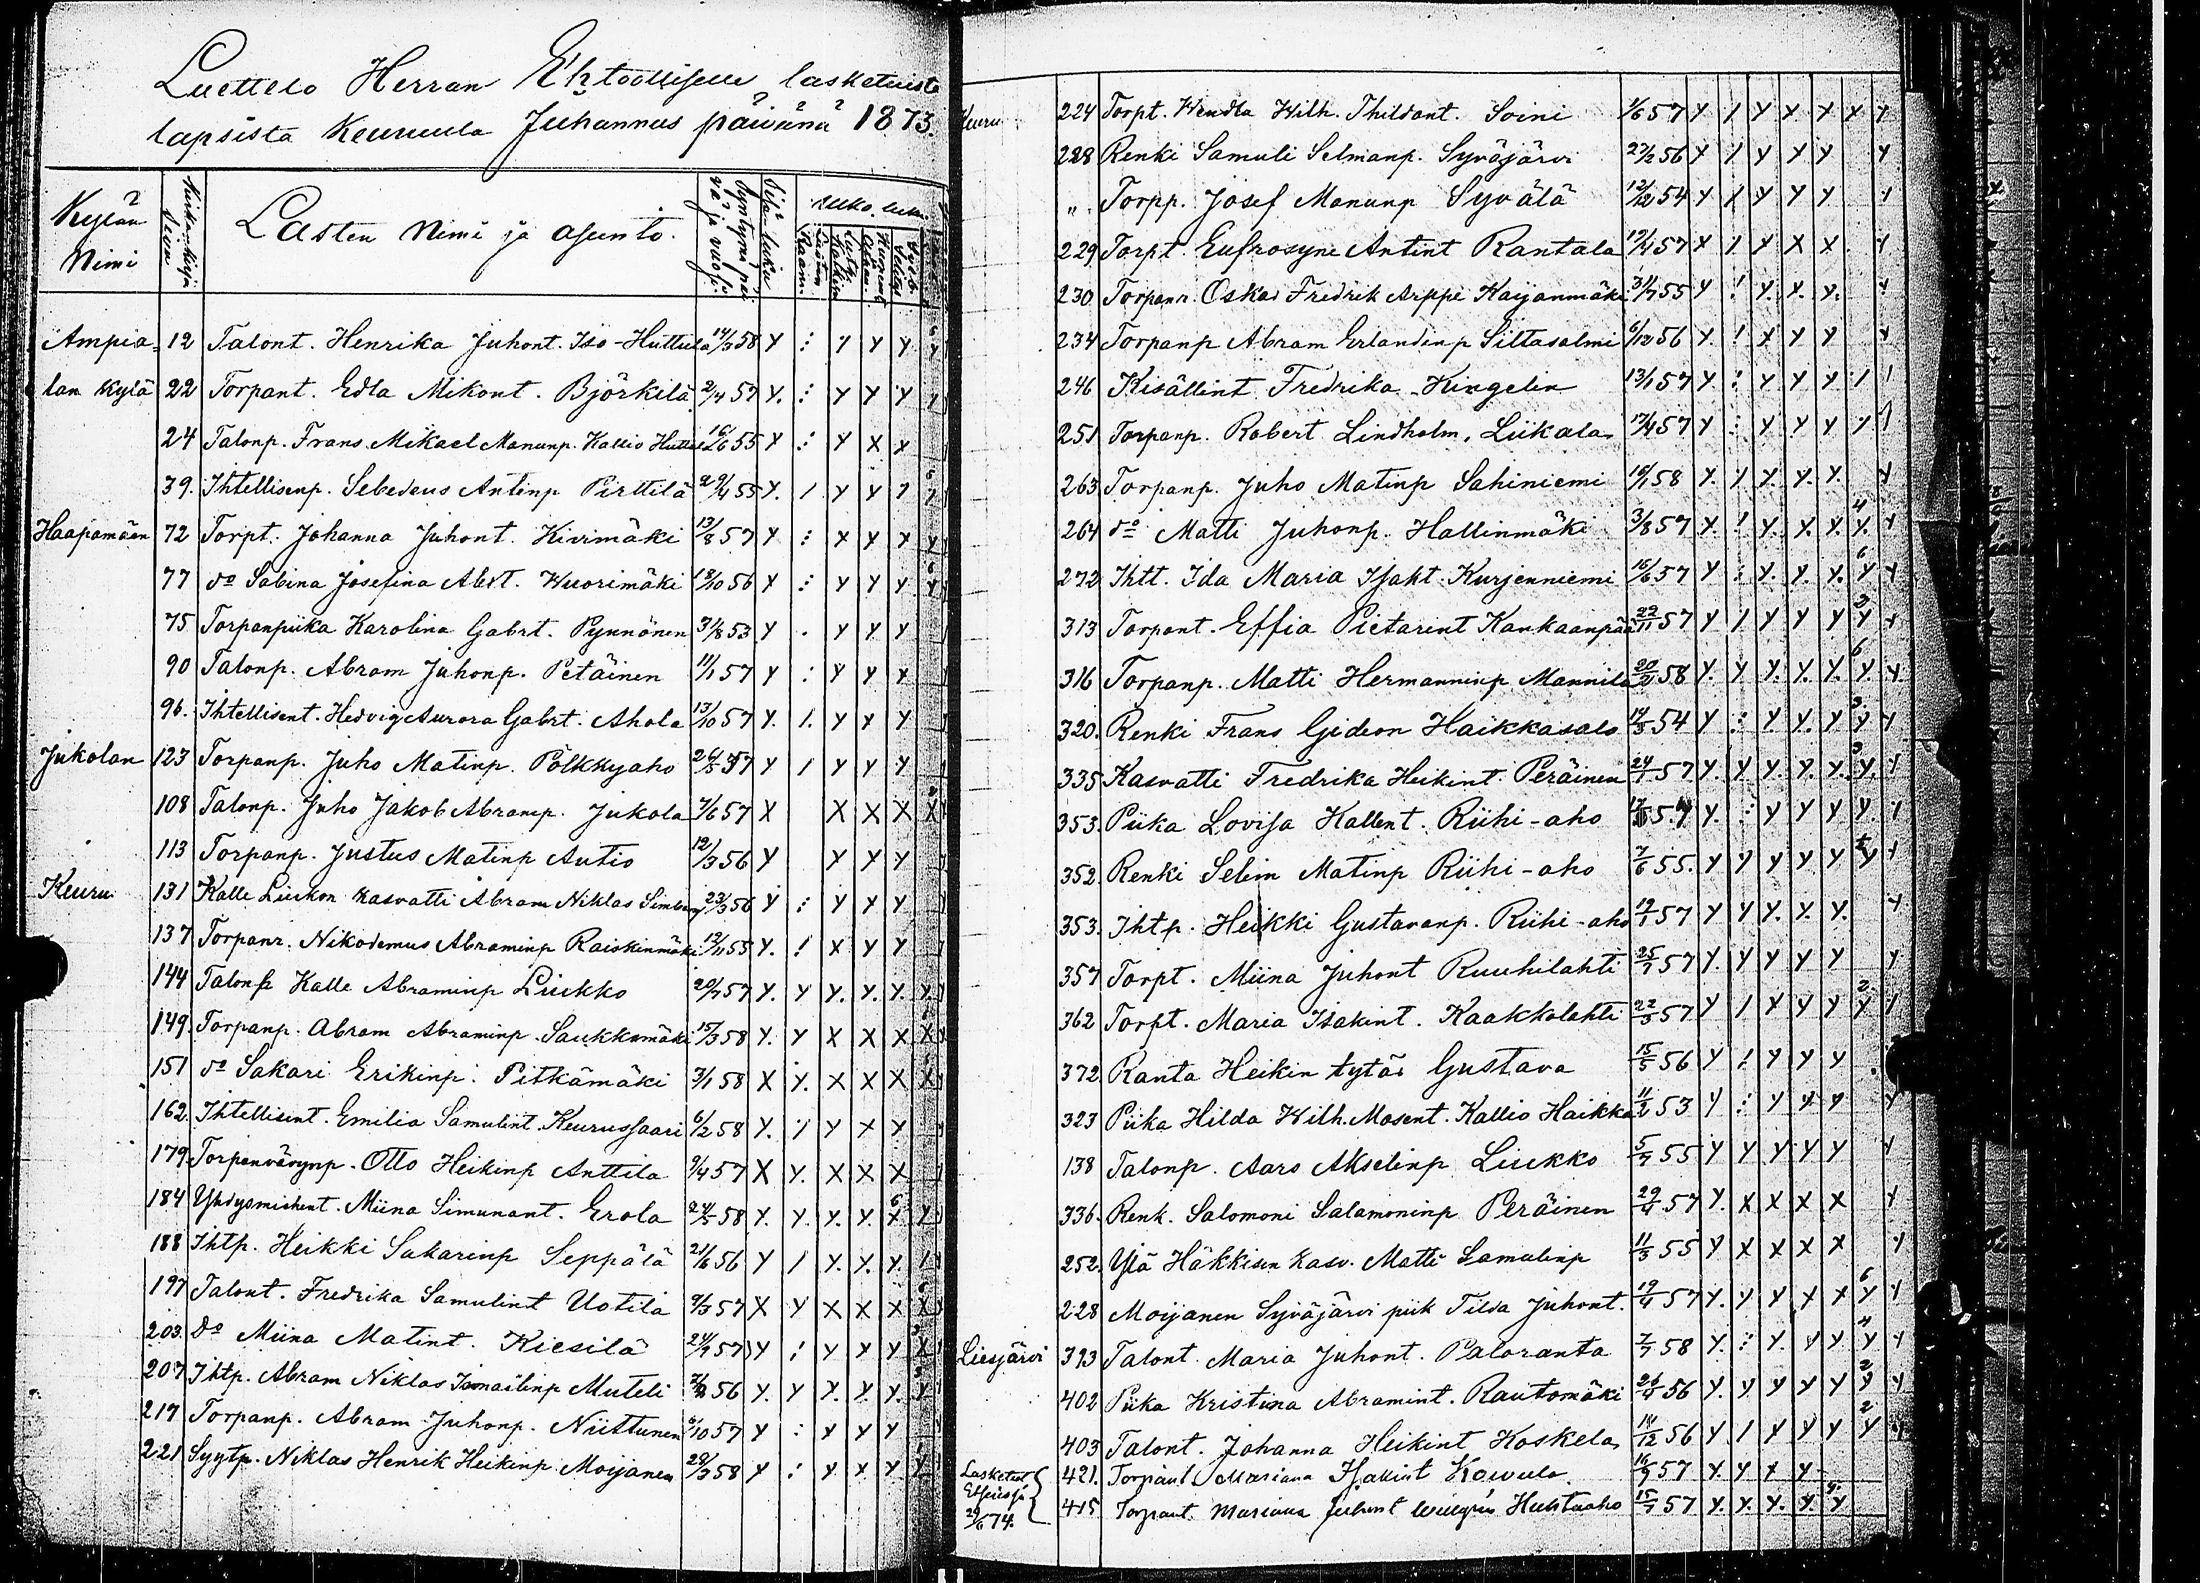 Luettelo Herran Ehtoolliselle lasketuista
lapsista Keuruula Juhannus päivänä 1873.
Kylän Nimi
Kirkonkirja Sivu
Lasten Nimi ja asunto.
Sisä luku
Ulko luku
Ampia- 12 Talont. Henrika Juhont. Iso-Huttula 14/3 58
lan kylä 22 Torpant. Edla Mikont. Björkilä 2/4 57
24 Talonp. Frans Mikael Manunp. Kallio Huttula 16/6 55
39. Ihtellisenp. Sebedeus Antinp Pirttilä 29/4 55
Haapamäen 72 Torpt. Johanna Juhont. Kivimäki 13/8 57
77 do Sabina Josefina Abrt. Wuorimäki 18/10 56
75 Torpanpiika Karolina Gabrt. Pynnönen 31/8 53
90 Talonp. Abram Juhonp. Petäinen 11/1 57
96. Ihtellisent. Hedvig Aurora Gabrt. Ahola 13/10 57
Jukolan 123 Torpanp. Juho Matinp. Pölkkyaho 24/5 57
108 Talonp. Juho Jakob Abramp. Jukola 7/6 57
113 Torpanp. Justus Matinp Autio 12/3 56
Keuru 131 Kalle Liukon kasvatti Abram Niklas Simberg 23/3 56
137 Torpanr. Nikodemus Abraminp Raiskinmäki 12/11 55
144 Talonp Kalle Abraminp Liukko 20/7 57
149. Torpanp. Abram Abraminp. Saukkomäki 15/3 58
151 do Sakari Erikinp. Pitkämäki 3/1 58
162. Ihtellisent. Emilia Samulint. Keurussaari 6/2 58
179. Torpanvävynp. Otto Heikinp Anttila 9/4 57
184 Yhdysmiehent. Miina Simunant. Erola 24/5 58
188 Ihtp. Heikki Sakarinp Seppälä 21/6 56
197 Talont. Fredrika Samulint Uotila 9/3 57
203. do Miina Matint. Kiesilä 24/7 57
207 Ihtp. Abram Niklas Ismailinp Muteli 56
217 Torpanp. Abram Juhonp. Niittunen 6/10 57
221 Syytp. Niklas Henrik Heikinp Moijanen 28/3 58
Keuru 224 Torpt. Wendla Wilh. Thildant. Soini 1/6 57
228 Renki Samuli Selmanp. Syväjärvi 27/2 56
„ Torpp. Josef Manunp Syvälä 12/12 54
229. Torpt. Eufrosyne Antint Rantala 17/4 57
230 Torpanr. Oskar Fredrik Arppe Kaijanmäki 31/7 55
234 Torpanp Abram Erlandinp Siltasalmi 6/12 56
246 Kisällint Fredrika Kingelin 13/1 57
251 Torpanp. Robert Lindholm, Liikala 17/4 57
263 Torpanp. Juho Matinp Sahiniemi 10/1 58
264 do Matti Juhonp. Hallinmäki 3/8 57
272. Ihtt. Ida Maria Isakt. Kurjenniemi 15/6 57
313 Torpant. Effia Pietarint Kankaanpää 22/11 57
316 Torpanp. Matti Hermanninp Mannila 20/2 58
320. Renki Frans Gideon Haikkasalo 14/3 54
335 Kasvatti Fredrika Heikint. Peräinen 24/1 57
353. Piika Lovisa Kallent. Riihi-aho
352. Renki Selim Matinp Riihi-aho 7/6 55.
353. Ihtp. Heikki Gustavanp. Riihi-aho 19/1 57
357 Torpt. Miina Juhont Ruuhilahti 25/7 57
362 Torpt. Maria Isakint. Kaakkolahti 22/3 57
372. Ranta Heikin tytär Gustava 15/5 56
323 Piika Hilda Wilh. Mosent. Kallio Haikka 11/2 53
138 Talonp. Aaro Akselinp Liukko 5/7 55
336. Renk. Salomoni Salamoninp Peräinen 29/4 57
252. Ylä Häkkisen kasv. Matti Samulinp 11/3 55
228 Moijanen Syväjärvi piik Tilda Juhont. 19/4 57
Liesjärvi 393 Talont Maria Juhont. Paloranta 7/7 58
402 Piika Kristina Abramint. Rautomäki 26/4 56
403 Talont. Johanna Heikint Koskela 14/12 56
Lasketut 421. Torpant Mariana Isakint Koivula 16/9 57
29/6 74. 415 Torpant. Mariana Juhont Huhtaaho 15/7 57